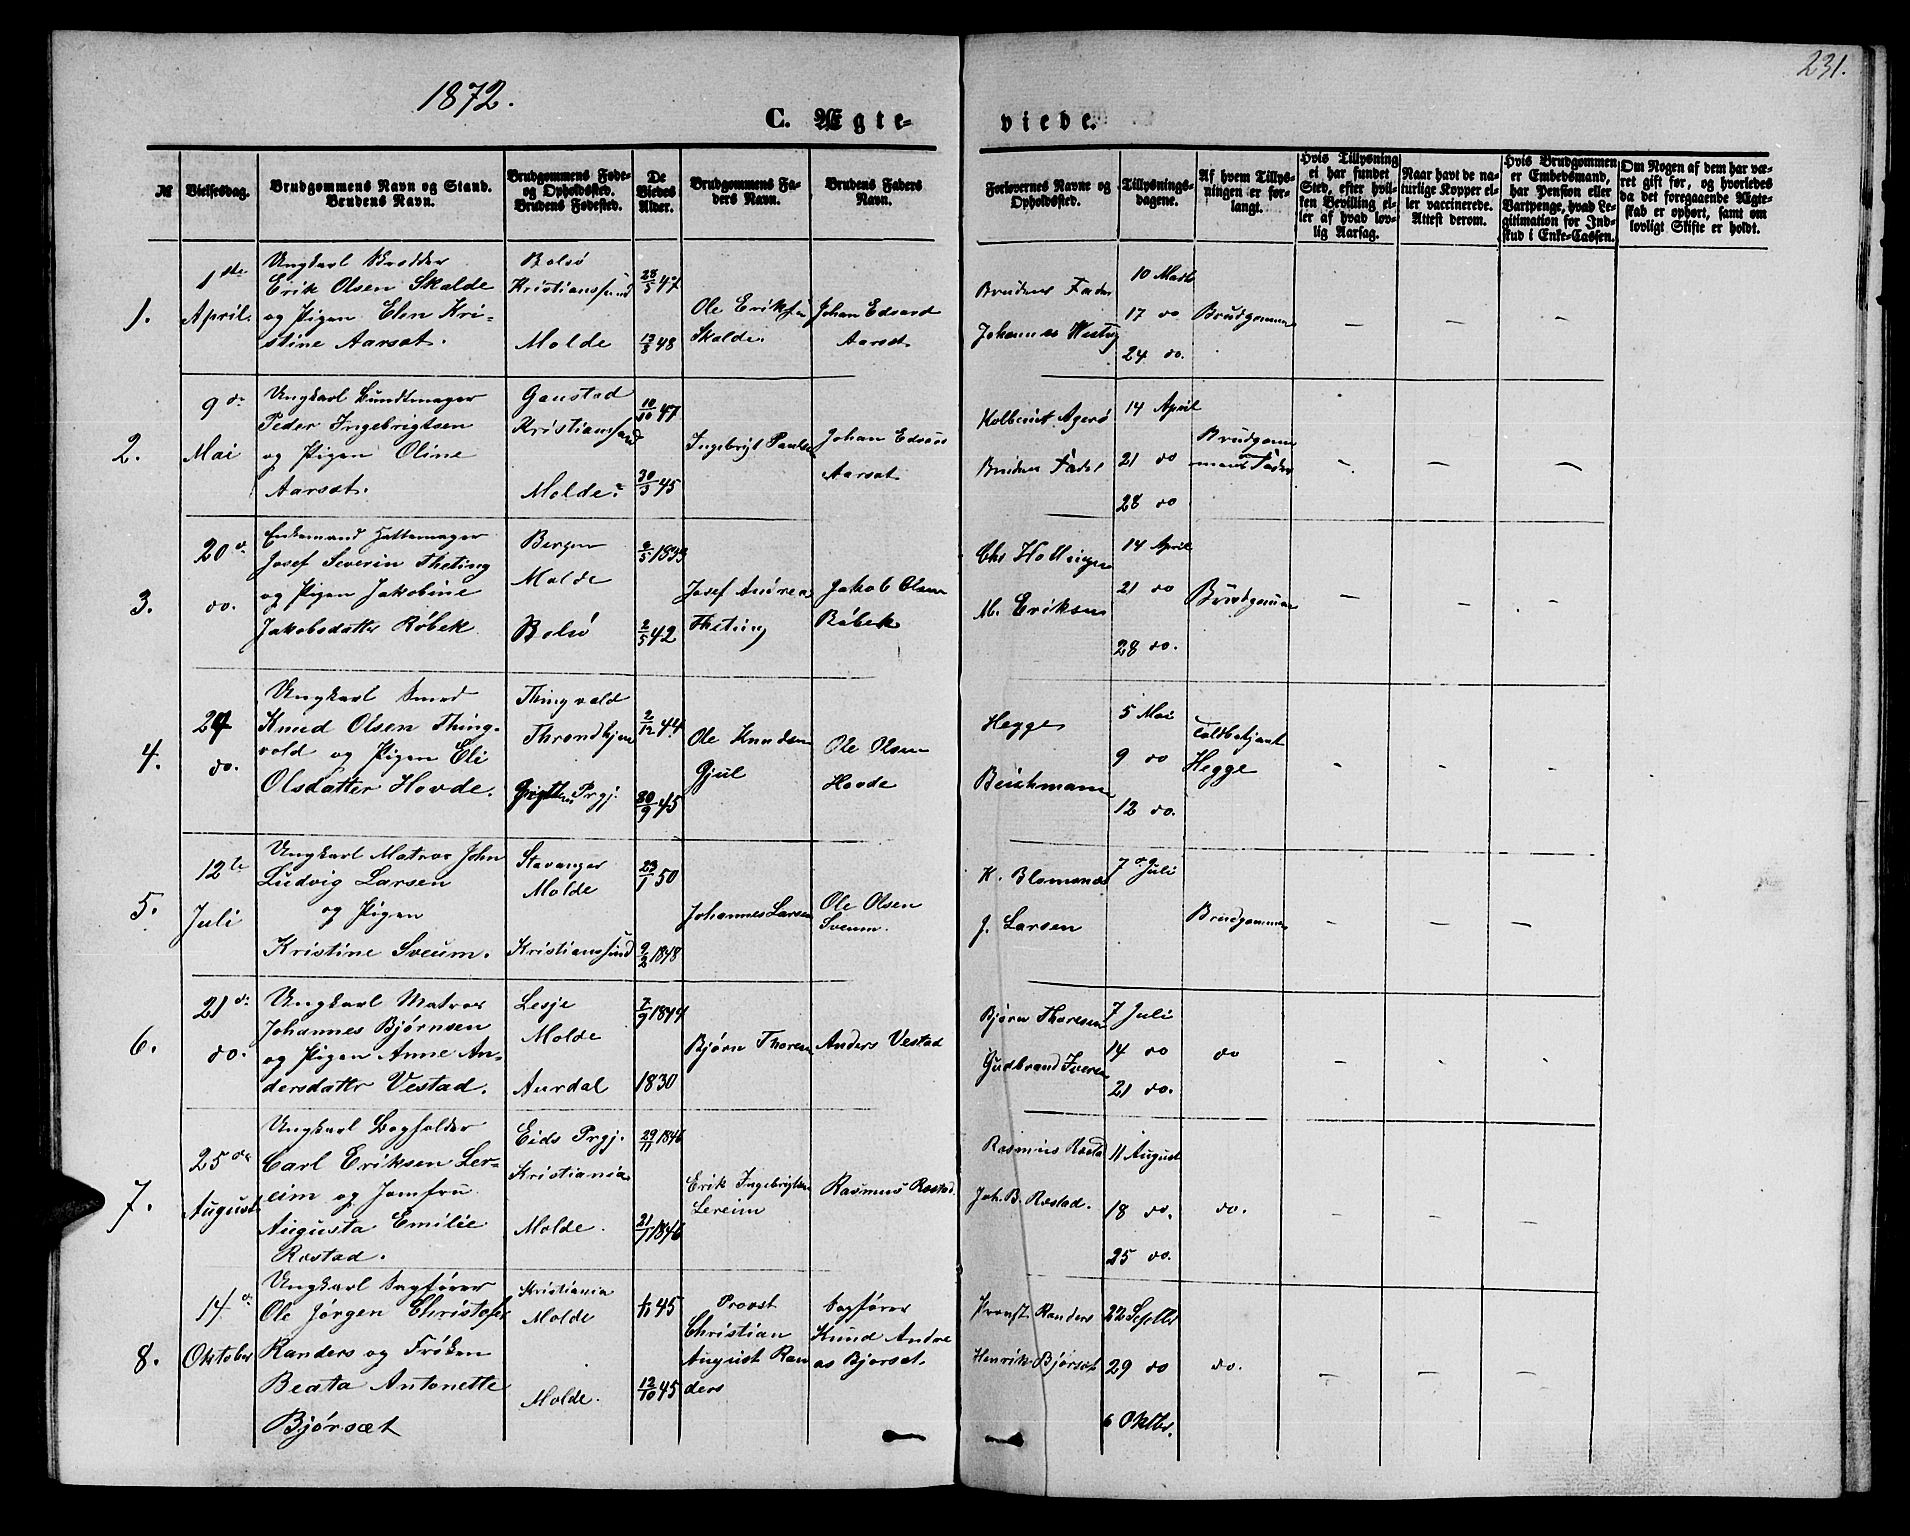 231.
1872.
C. Ægte-
viede.
№
Vielsesdag.
Brudgommens Navn og Stand.
Brudens Navn.
Brudgommens Føde-
og Opholdssted.
Brudens Fødested.
De
Viedes
Alder.
Brudgommens Fa-
ders Navn.
Brudens Faders
Navn.
Forlovernes Navne og
Opholdssted.
Tillysnings-
dagene.
Af hvem Tillys-
ningen er for-
langt.
Hvis Tillysning
ei har fundet
Sted, efter hvil-
ken Bevilling el-
ler af hvad lov-
lig Aarsag.
Naar havt de na-
turlige Kopper el-
ler vaccinerede.
Attest derom.
Hvis Brudgommen
er Embedsmand,
har Pension eller
Vartpenge, hvad Le-
gitimation for Ind-
skud i Enke-Cassen.
Om Nogen af dem har væ-
ret gift før, og hvorledes
da det foregaaende Ægte-
skab er ophørt, samt om
lovligt Skifte er holdt.
1.
1ste
April.
Ungkarl Bødker
Erik Olsen Skalde
og Pigen Elen Kri-
stine Aarsæt.
Bolsø
Kristianssund
Molde
28/5 47
13/3 48
Ole Eriksen
Skalde.
Johan Edvard
Aarsæt
Brudens Fader
Johannes
10 Marts
17 do
24 do.
Brudgommen
2.
9de
Mai
Ungkarl Bundtmager
Peder Ingebrigtsen
og Pigen Oline
Aarsæt.
Gaustad
Kristianssund
Molde.
10/10 47
30/3 45
Ingebrigt Paulsen
Johan
Aarsæt
Agerø
Brudens Fader
14 April
21 do
28 do
Brudgom-
mens Fader
3.
20de
do.
Enkemand Hattemager
Josef Severin Theting
og Pigen Jakobine
Jakobsdatter Røbek
Bergen
Molde
Bolsø
2/5 42
Josef Andreas
Theting
Jakob Olsen
Røbek
Chr
M. Eriksen
14 April
21 do
28 do.
Brudgommen
4.
24
do.
Ungkarl Smed
Knud Olsen Thing-
vold og Pigen Eli
Olsdatter Hovde.
Thingvold
Throndhjem
Grytten Prgj.
2/12 44
30/9 45
Ole Knudsen
Gjul
Ole Olsen
Hovde
Hegge
Beichmann
5 Mai
9 do
12 do.
Toldbetjent
Hegge
5.
12te
Juli
Ungkarl Matros John
Ludvig Larsen
og Pigen
Kristine Sveum.
Stavanger
Molde
Kristianssund
23/1 50
9/2 1848
Johannes Larsen
Ole Olsen
Sveum.
K.
J. Larsen
7de Juli
Brudgommen
6.
21de
do.
Ungkarl Matros
Johannes Bjørnsen
og Pigen Anne An-
dersdattr Vestad.
Lesje
Molde
Aurdal
7/9 1844
1830
Bjørn Thoresen
Anders Vestad
Bjørn Thoresen
Gudbrand Iversen
7 Juli
14 do
21 do.
do
7.
25de
August
Ungkarl Bogholder
Carl Eriksen Ler-
eim og Jomfru
Augusta Emilie
Rostad.
Eids Prgj.
Kristiania
Molde.
29/11 1846
21/7 1846
Erik Ingebrigtsen
Lereim
Rasmus Rostad
Rasmus Rostad
Joh. B. Rostad.
11 August
18 do.
25 do.
do.
8.
14de
Oktober
Ungkarl Sagfører
Ole Jørgen Christofer
Randers og Frøken
Beata Antonette
Bjørsæt
Kristiania
Molde
Molde.
1/11 45
12/10 45
Provst
Christian
August Ran
ders
Sagfører
Knud Andre
as Bjørsæt.
Provst Randers
Henrik Bjørsæt
22 Septbr
29 do
6 Oktbr.
do.